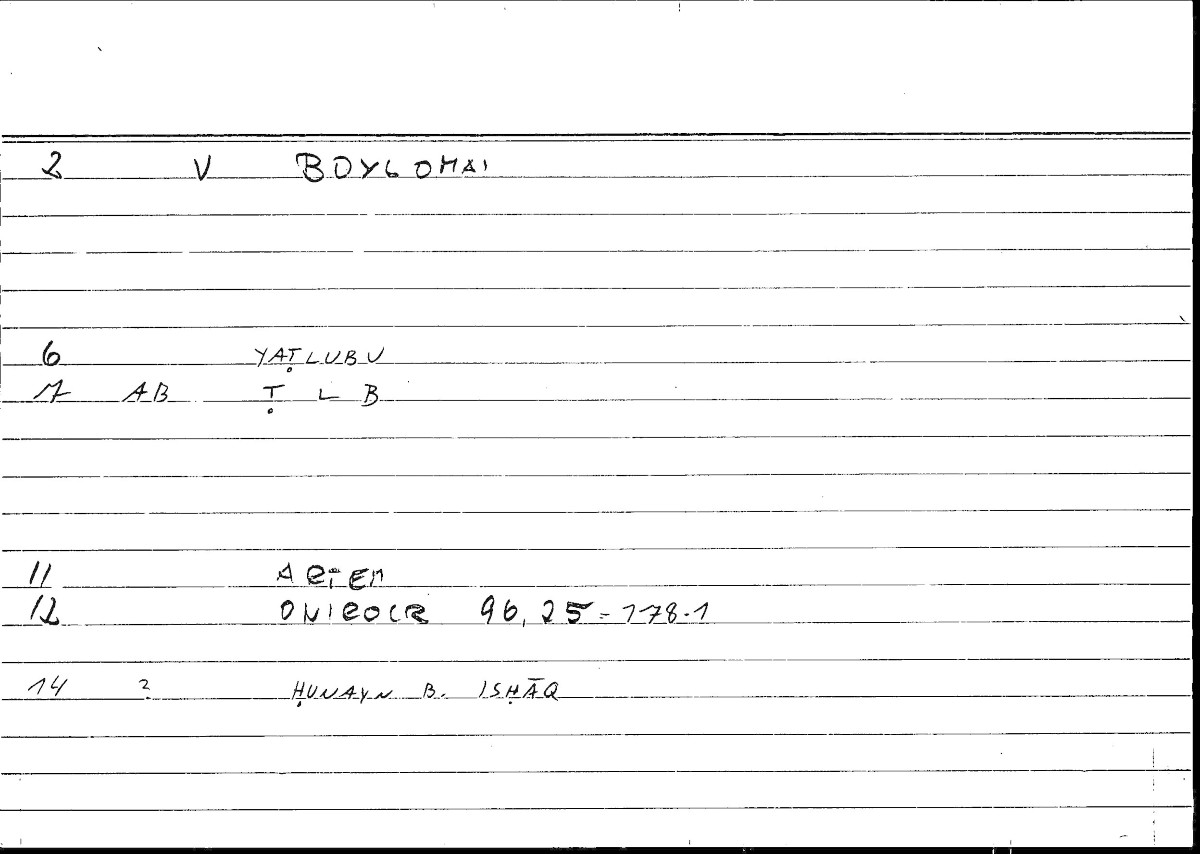 2 V BOYLOMAI
6 YAṬLUBU
7 AB Ṭ L B
11 ARTEM
12 ONIROCR 96,25=178.1
14 2 ḤUNAYN B. ISḤĀQ